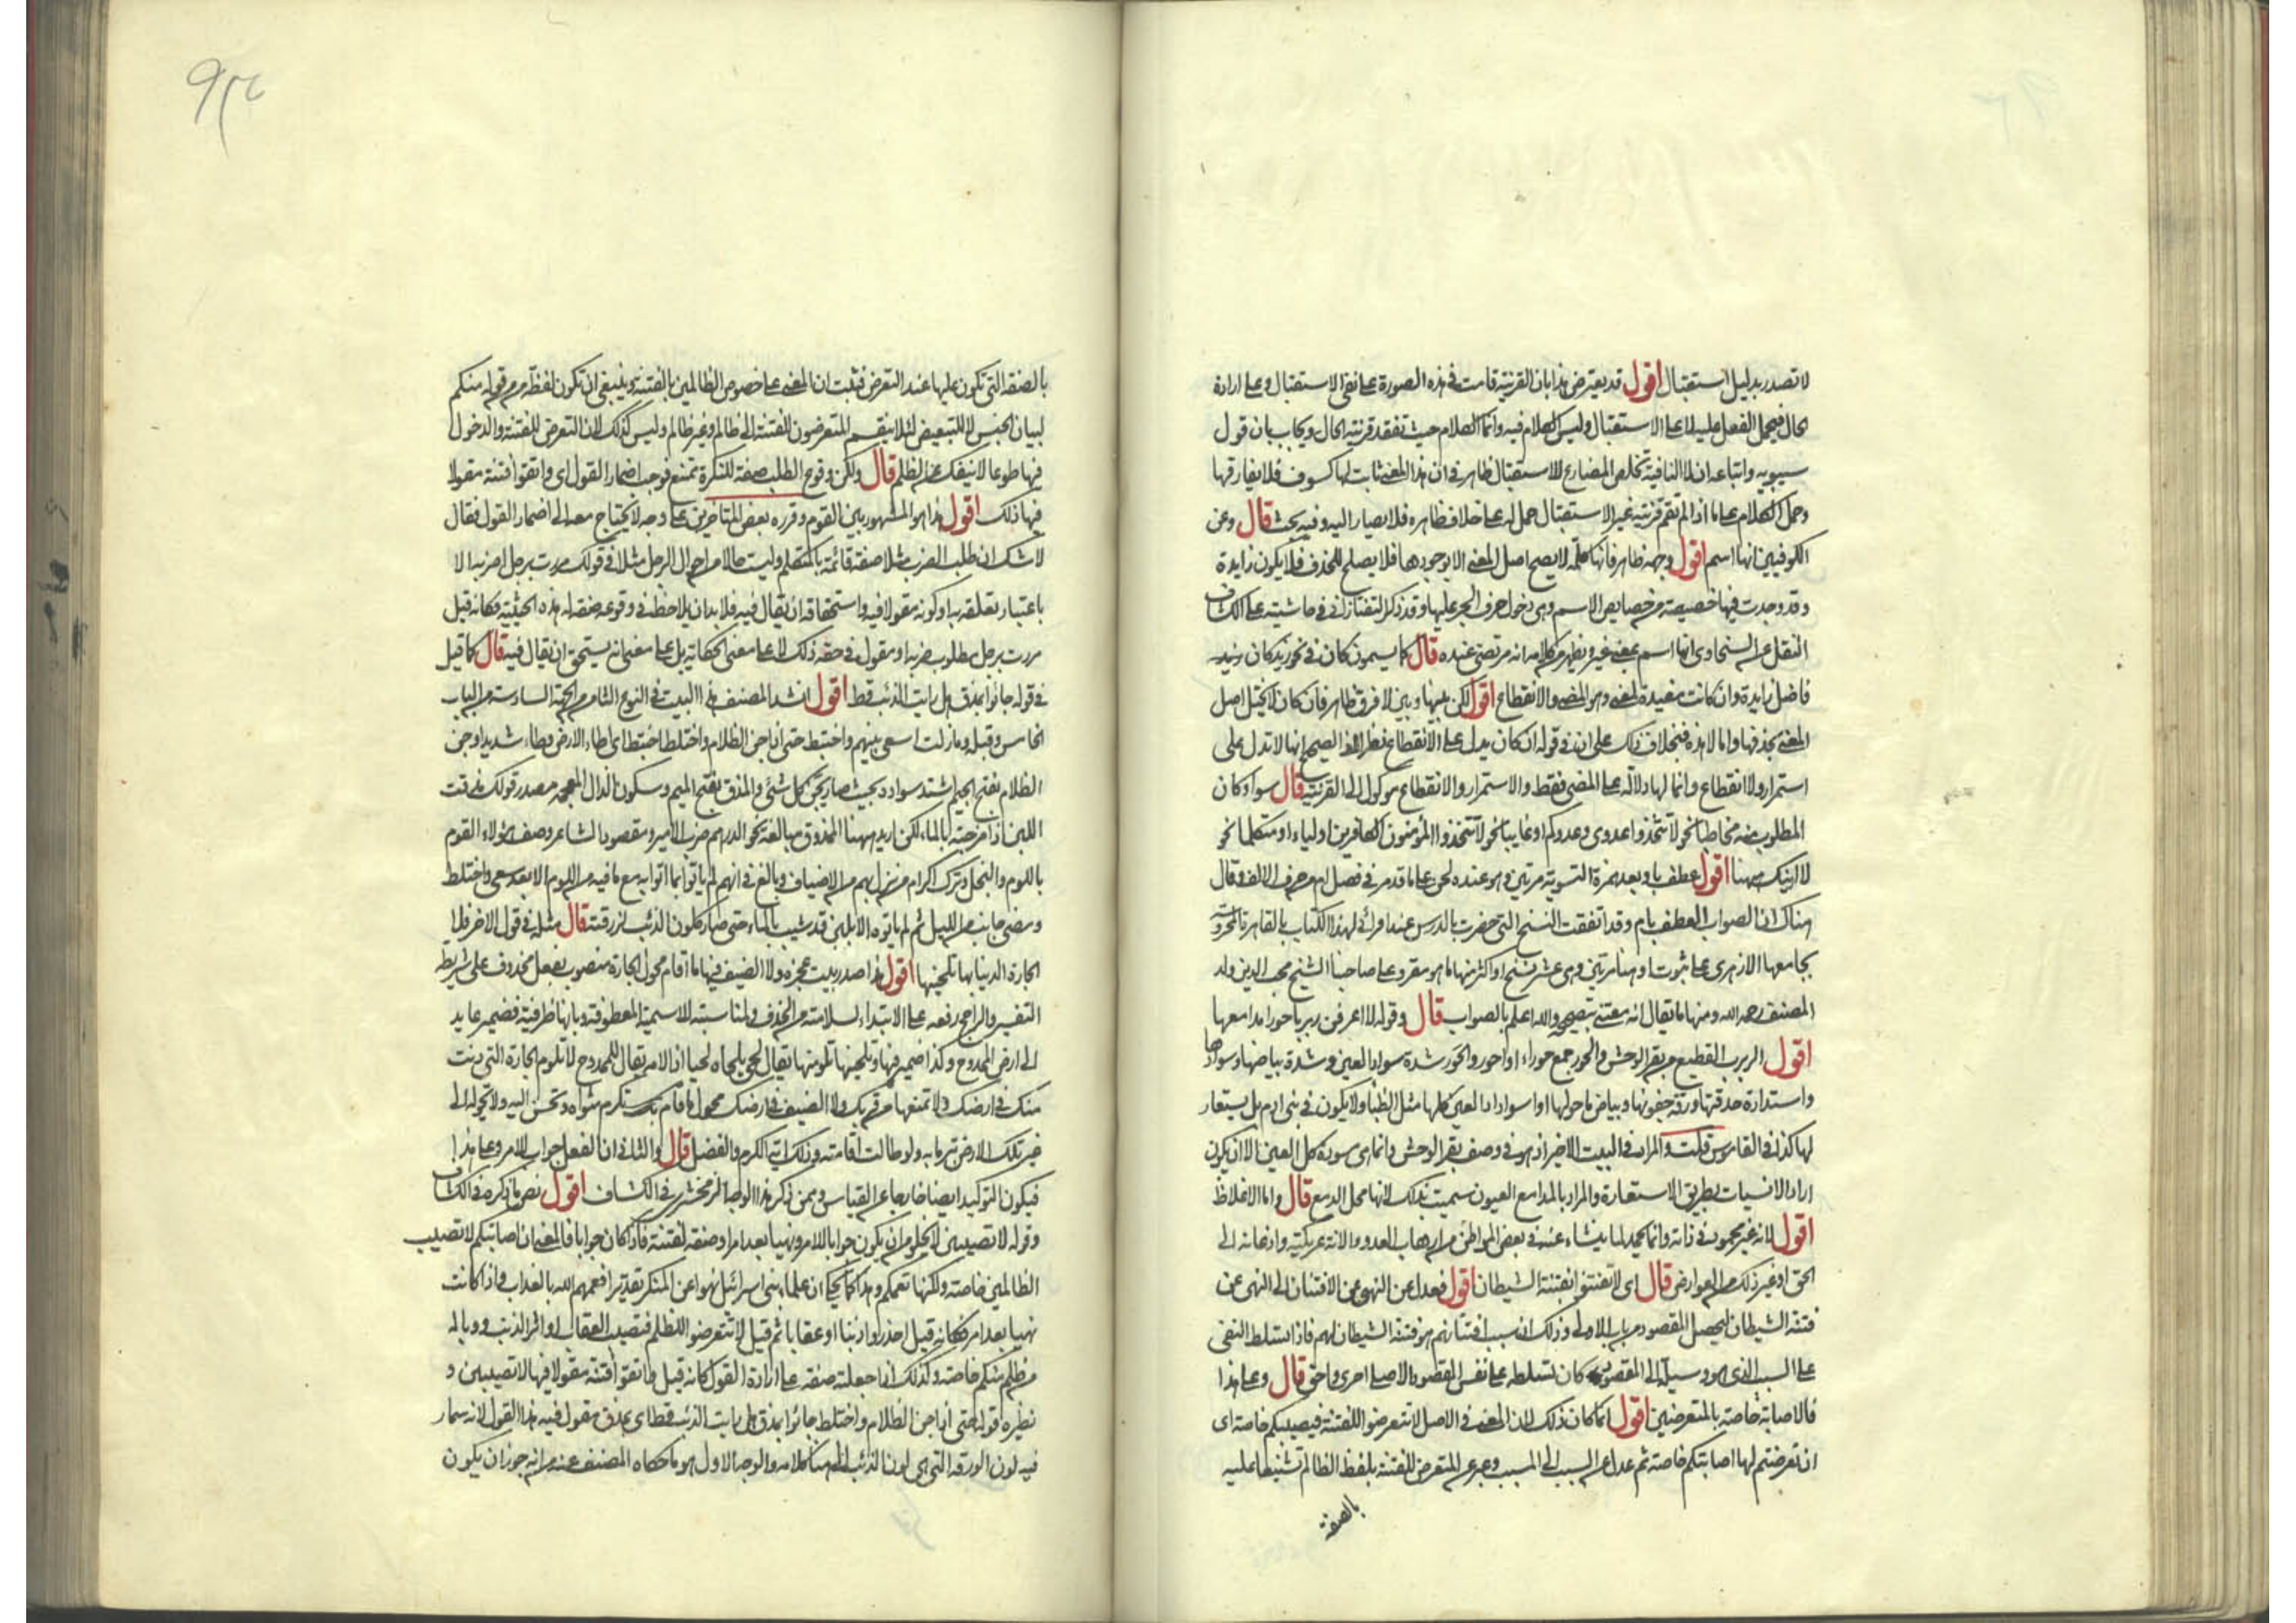 لا تصدر بدليل استقبال اقول قد يعترض هذا بان القرينة قامت في هذه الصورة على نفي الاستقبال وعلى ارادة
الحال فيحمل الفعل عليه لا على الاستقبال وليس الكلام فيه وانما الكلام حيث تفقد قرينة الحال ويجاب بان قول
سيبويه واتباعه ان لا النافية تخلص المضارع للاستقبال ظاهر في ان هذا المعنى ثابت لها كسوف فلا يفارقها
وحمل الكلام على ما اذا لم تقم قرينة غير الاستقبال حمل له على خلاف ظاهره فلا يصار اليه وفيه بحث قال وعن
الكوفيين انها اسم اقول وجهه ظاهر فانها كلمة لا يصح اصل المعنى الا بوجودها فلا يصلح للحذف فلا يكون زايدة
وقد وجدت فيها خصيصة من خصايص الاسم وهي دخول حرف الجر عليها وقد ذكر التفتازاني في حاشيته على الكشاف
النقل عن السخاوي انها اسم بمعنى غير ويظهر من كلامه انه مرتضى عنده قال كما يسمون كان في نحو زيد كان
فاضل زايدة وان كانت مفيدة لمعنى وهو المضي والانقطاع اقول لكن بينها وبين لا فرق ظاهر فان كان لا يختل اصل
المعنى بحذفها واما لا هذه فبخلاف ذلك على ان في قوله ان كان يدل على الانقطاع نظرا اذ الصحيح انها لا تدل على
استمرار ولا انقطاع وانما لها دلالة على المضي فقط والاستمرار والانقطاع موكول الى القرينة قال سواء كان
المطلوب منه مخاطبا نحو لا تتخذوا عدوي وعدوكم او غايبا نحو لا يتخذ المؤمنون الكافرين اولياء او متكلما نحو
لا ارينك ههنا اقول عطف باو بعد همزة التسوية مرتين وهو عنده لحن على ما قدمه في فصل ام من حرف الالف وقال
هناك ان الصواب العطف بام وقد اتفقت النسخ التي حضرت بالدرس عند اقرائي لهذا الكتاب بالقاهرة المحروسة
بجامعها الازهر على ثبوت او هنا مرتين وهي عشر نسخ او اكثر منها ما هو مقروء على صاحبنا الشيخ محب الدين ولد
المصنف رحمه الله ومنها ما يقال انه معتنى بتصحيحه والله اعلم بالصواب قال وقوله لا اعرفن ربربا حورا مدامعها
اقول الربرب القطيع من بقر الوحش والحور جمع حوراء او احور والحور شدة سواد العين في شدة بياضها وسوادها
واستدارة حدقتها ورقة جفونها وبياض ما حولها او اسوداد العين كلها مثل الظبا ولا يكون في بني ادم بل يستعار
لها كذا في القاموس قلت والمراد في البيت الاخير اذ هو في وصف بقر الوحش وانما هي سودة كل العين الا ان يكون
اراد الانسيات بطريق الاستعارة والمراد بالمدامع العيون سميت بذلك لانها محل الدمع قال واما الاغلاظ
اقول لانه غير محمود في ذاته وانما يحمد لما ينشاء عنه في بعض المواطن من ارهاب العدو والانة عريكته واذعانه الى
الحق او غير ذلك من العوارض قال اي لا تفتتنوا بفتنة الشيطان اقول فعدل عن النهي عن الافتتان الى النهي عن
فتنة الشيطان ليحصل المقصود من باب الاولى وذلك ان سبب افتتانهم هو فتنة الشيطان لهم فاذا تسلط النفي
على السبب الذي هو وسيلة الى المقصود كان تسلطه على نفس المقصود الاصلي احرى واحق قال وعلى هذا
فالاصابة خاصة بالمتعرضين اقول انما كان ذلك لان المعنى في الاصل لا تتعرضوا للفتنة فيصيبكم خاصة اي
ان تعرضتم لها اصابتكم خاصة ثم عدل عن السبب الى المسبب وعبر عن المتعرض للفتنة بلفظ الظالم تشنيطا عليه
بالصفة
بالصفة التي تكون عليها عند التعرض فثبت ان المعنى على خصوص الظالمين بالفتنة وينبغي ان تكون لفظة من من قوله منكم
لبيان الجنس لا للتبعيض لئلا ينقسم المتعرضون للفتنة الى ظالم وغير ظالم وليس كذلك لان التعرض للفتنة والدخول
فيها طوعا لا ينفك عن الظلم قال ولكن وقوع الطلب صفة للنكرة ممتنع فوجب اضمار القول اي واتقوا فتنة مقولا
فيها ذلك اقول هذا هو المشهور بين القوم وقرره بعض المتاخرين على وجه لا يحتاج معه الى اضمار القول فقال
لا شك ان طلب الضرب مثلا صفة قائمة بالمتكلم وليست حالا من احوال الرجل مثلا في قولك مررت برجل اضربه الا
باعتبار تعلقه به او كونه مقولا فيه واستحقاقه ان يقال فيه فلا بد ان يلاحظ في وقوعه صفة له هذه الحيثية فكانه قيل
مررت برجل مطلوب ضربه او مقول في حقه ذلك لا على معنى الحكاية بل على معنى انه يستحق ان يقال فيه قال كما قيل
في قوله جاؤا بمذق هل رايت الذئب قط اقول انشد المصنف هذا البيت في النوع الثامن من الجهة السادسة من الباب
الخامس وقبله وما زلت اسعى بينهم واختبط حتى اذا جن الظلام واختلط اختبط اي اطاء الارض بطاء شديدا وجن
الظلام بفتح الجيم اشتد سواده بحيث صار يجن كل شئ والمذق بفتح الميم وسكون الذال المعجمة مصدر قولك مذقت
اللبن اذا مزجته بالماء لكن اريد ههنا الممذوق مبالغة نحو الدرهم ضرب الامير ومقصود الشاعر وصف هؤلاء القوم
باللوم والبخل وترك اكرام من نزل بهم من الاضياف وبالغ في انهم لم ياتوا بما اتوا به مع ما فيه من اللوم الا بعد سعي واختلط
ومضى جانب من الليل ثم لم ياتوه الا بلبن قد شيب بالماء حتى صار كلون الذئب لزرقته قال مثله في قول الاخر فلا
الجارة الدنيا بها تلحينها اقول هذا صدر بيت عجزه ولا الضيف فيها ما اقام محول الجارة منصوب بفعل محذوف على شريطة
التفسير والراجح رفعه على الابتداء لسلامته من الحذف ولمناسبته للاسمية المعطوفة وبها ظرفية فضمير عايد
الى ارض الممدوح وكذا ضمير فيها وتلحينها تلومنها يقال لحى يلحاه لحيا اذا لامه يقال للممدوح لا تلوم الجارة التي دنت
منك في ارضك ولا تمنعها من قربك ولا الضيف في ارضك محول ما اقام بك ستكرم مثواه وتحسن اليه ولا تحوله الى
غير تلك الارض تبرما به ولو طالت اقامته وذلك اية الكرم والفضل قال والثاني ان الفعل جواب الامر وعلى هذا
فيكون التوكيد ايضا خارجا عن القياس وممن ذكر هذا الوجه الزمخشري في الكشاف اقول نص ما ذكره في الكشاف
وقوله لا تصيبن لا يخلو من ان يكون جوابا للامر او نهيا بعد امر او صفة لفتنة فاذا كان جوابا فالمعنى ان اصابتكم لا تصيب
الظالمين خاصة ولكنها تعمكم وهذا كما يحكى ان علماء بني اسرائيل نهوا عن المنكر تعذيرا فعمهم الله بالعذاب واذا كانت
نهيا بعد امر فكانه قيل احذروا ذنبا او عقابا ثم قيل لا تتعرضوا للظلم فتصيب العقاب او اثر الذنب ووباله
من ظلم منكم خاصة وكذلك اذا جعلته صفة على ارادة القول كانه قيل واتقوا فتنة مقولا فيها لا تصيبن و
نظيره قوله حتى اذا جن الظلام واختلط جاؤا بمذق هل رايت الذئب قط اي بمذق مقول فيه هذا القول لانه سمار
فيه لون الورقة التي هي لون الذئب الى هنا كلامه والوجه الاول هو ما حكاه المصنف عنه من انه جوز ان يكون